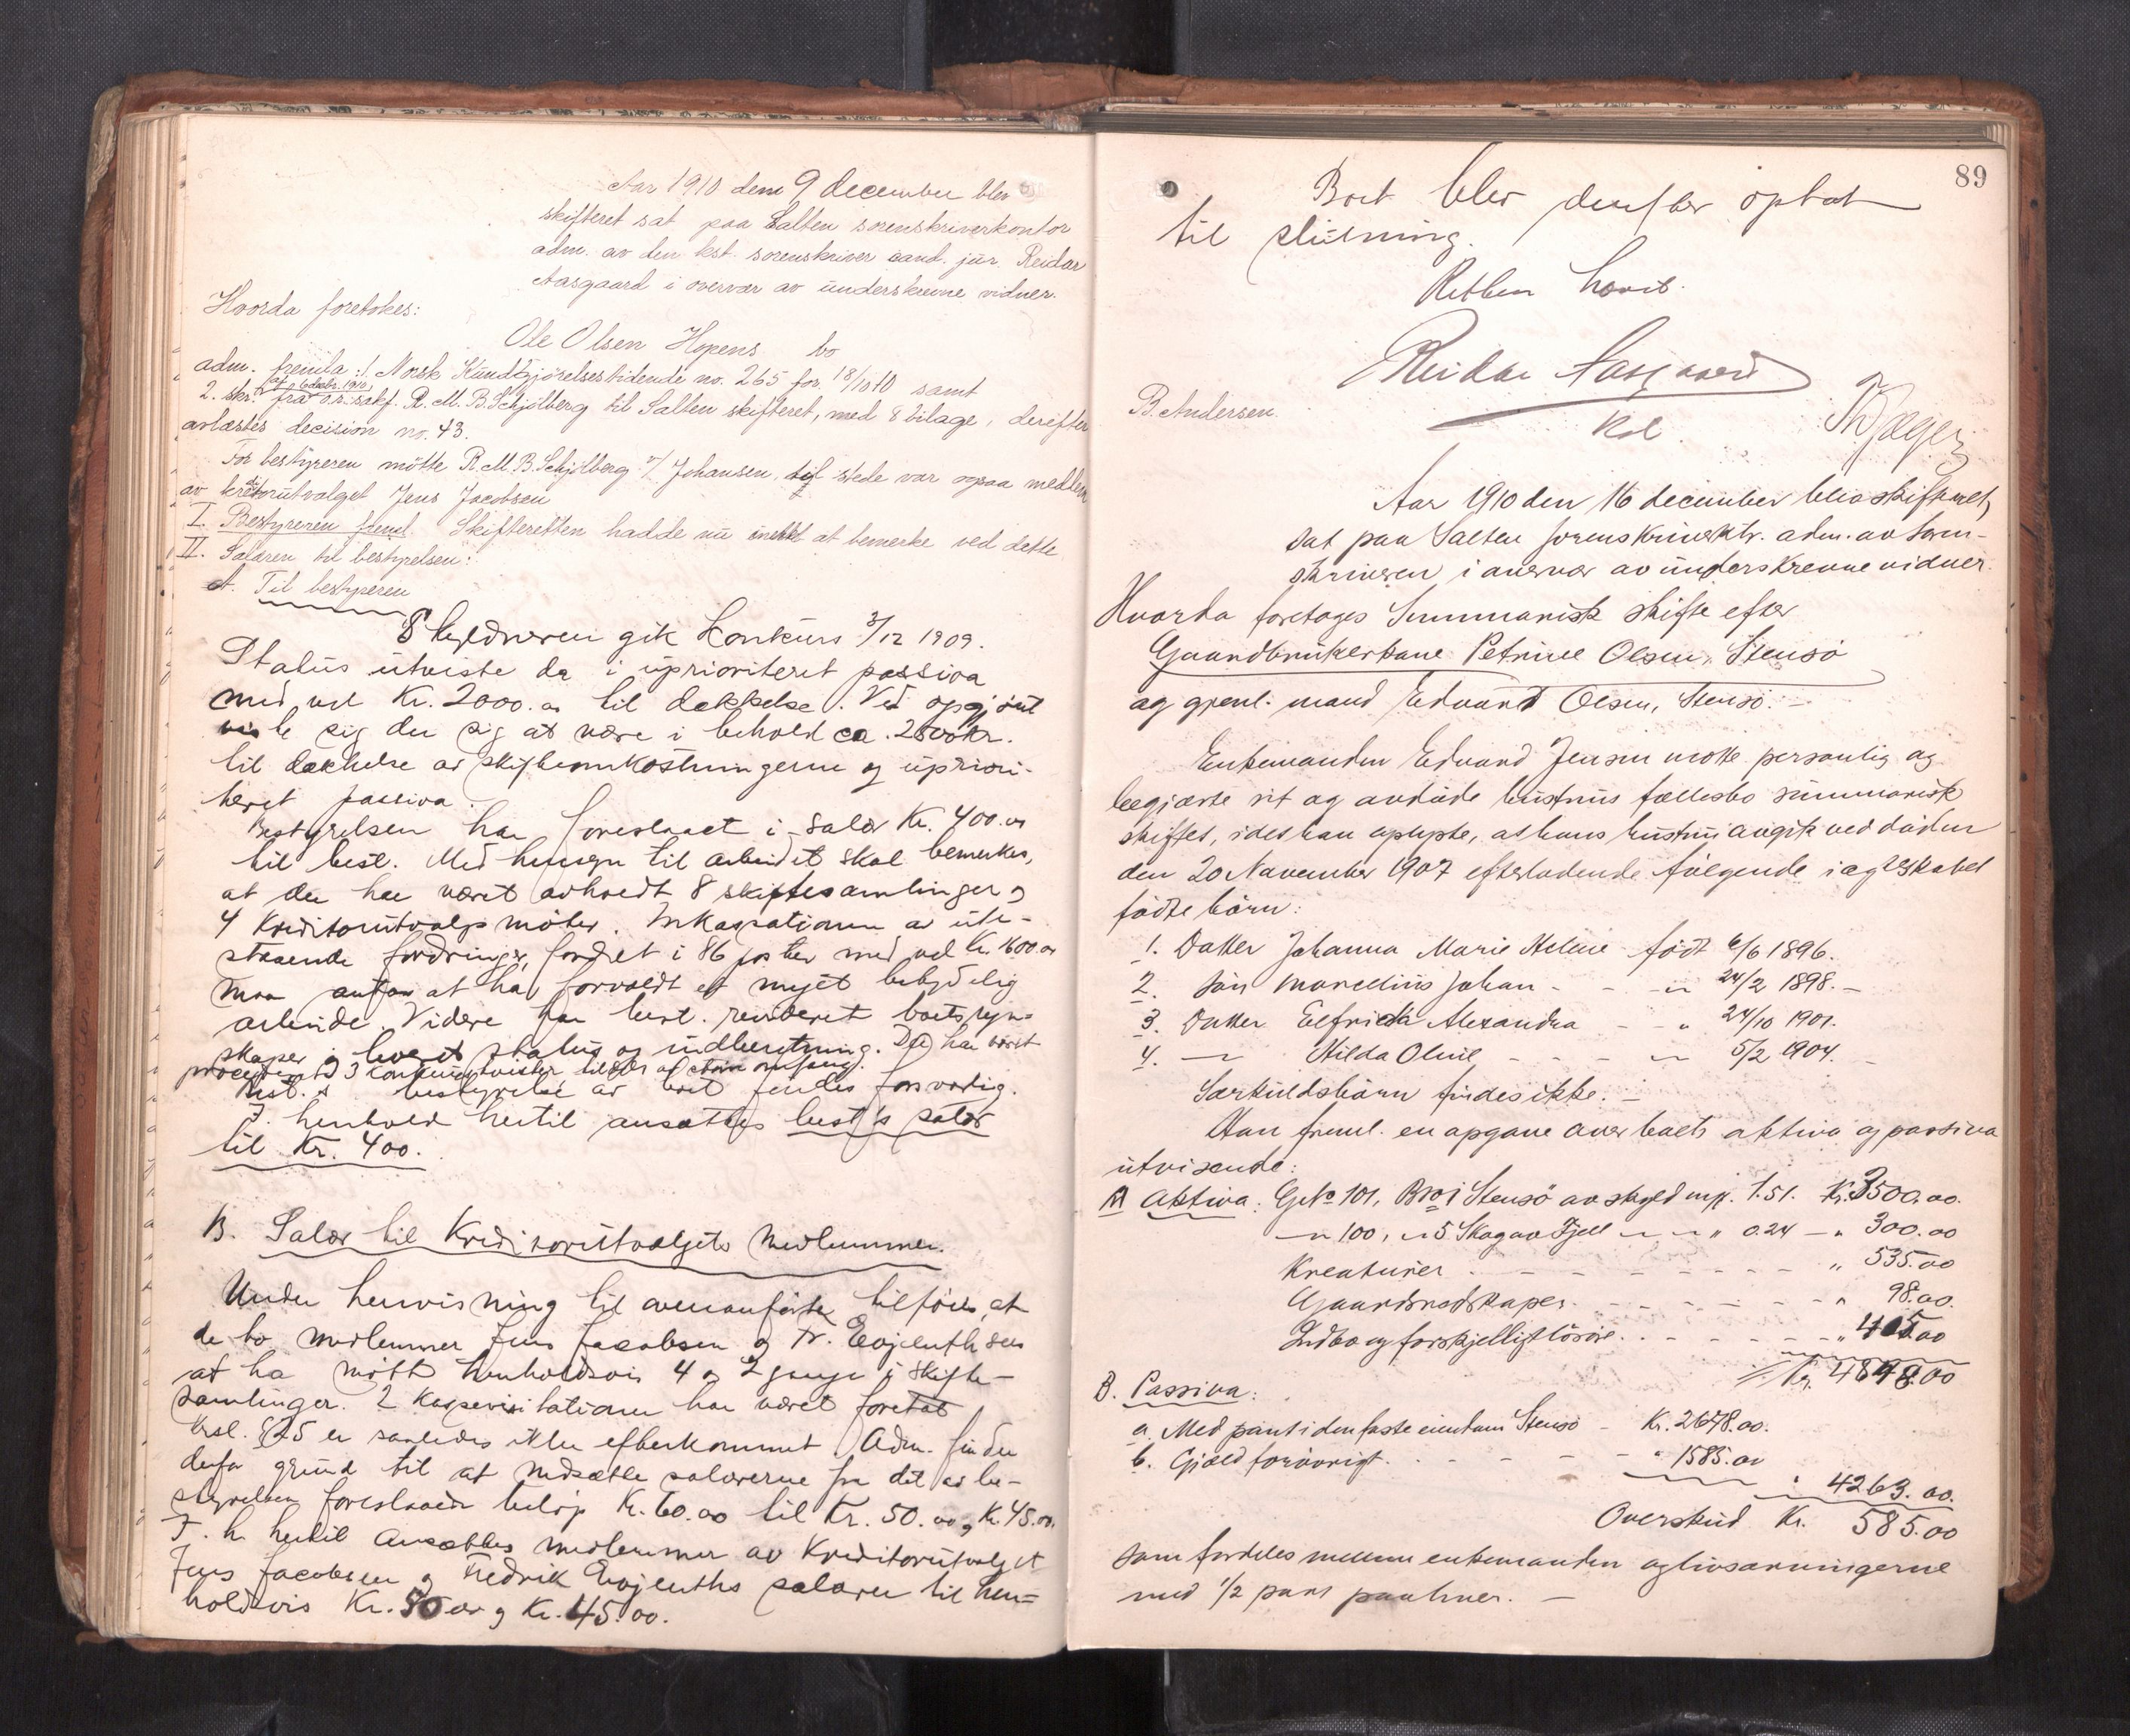 Aar 1910 den 9 december blev
skifteret sat paa Salten sorenskriverkontor
adm. av den kst. sorenskriver cand. jur. Reidar
Aasgaard i overvær av underskrevne vidner.
Hvorda foretokes:
Ole Olsen Hopens bo
adm. fremla: 1. Norsk Kundgjørelsestidende no. 265 for 18/11 10 samt
2. skr. af 6 decbr. 1910 fra o.r.sakf. R. M. B. Schjölberg til Salten skifteret, med 8 bilage, derefter
avlæstes decision no. 43.
For bestyreren mötte R. M. B. Schjölberg v/ Johansen, til stede var ogsaa medlem
av kreditorutvalget Jens Jacobsen
I. Bestyreren freml. Skifteretten hadde nu intet at bemerke ved dette
II. Salæren til bestyrelsen:
A. Til bestyreren
Skyldneren gik konkurs 3/12 1909.
Status utviste da i uprioriteret passiva
med vel Kr. 2000.00 til dækkelse. Ved opgjöret
viste sig der sig at være i behold ca. 2800 kr.
til dækkelse av skifteomkostningerne og upriori-
teret passiva.
Bestyrelsen har foreslaaet i salær Kr. 400.00
til best. Med hensyn til arbeidet skal bemerkes,
at der har været avholdt 8 skiftesamlinger og
4 Kreditorutvalgsmöter. Inkassationen av ute-
staaende fordringer, fordelt i 86 poster med vel Kr. 1600.00
maa antas at ha forvoldt et meget betydelig
arbeide. Videre har best. revideret boets regn-
skaper og levert status og indberetning. Der har været
procederet 3 konkurstvister tildels af större omfang.
Best.s bestyrelse av boet findes forsvarlig.
I henhold hertil ansættes best.s salær
til Kr. 400.
B. Salær til Kreditorutvalgets medlemmer.
Under henvisning til ovenanförte tilföies, at
de to medlemmer Jens Jacobsen og Fr. Evjenth sees
at ha mött henholdsvis 4 og 2 gange i skifte-
samlinger. 2 Kassevisitationer har været foretat
Ksl. § 25 er saaledes ikke efterkommet. Adm. finder
derfor grund til at nedsætte salærerne fra det av be-
styrelsen foreslaaede belöp Kr. 60.00 til Kr. 50.00 og Kr. 45.00.
I. h. hertil ansættes medlemmer av Kreditorutvalget
Jens Jacobsen og Fredrik Evjenths salærer til hen-
holdsvis Kr. 50.00 og Kr. 45.00.
89
Boet blev derefter optat
til slutning.
Retten hævet.
Reidar Aasgaard
kst.
B. Andersen.
Th Jæger
Aar 1910 den 16 december blev skifteret
sat paa Salten sorenskriverktr. adm. av soren-
skriveren i overvær av underskrevne vidner.
Hvorda foretages Summarisk skifte efter
Gaardbrukerkone Petrine Olsen, Stensö
og gjenl. mand Edvard Olsen, Stensö. –
Enkemanden Edvard Jensen motte personlig og
begjærte sit og avdöde hustrus fællesbo summarisk
skiftet, ides han oplyste, at hans hustru avgik ved döden
den 20 November 1907 efterladende fölgende i ægteskabet
födte börn:
1. Datter Johanna Marie Helene födt 6/6 1896.
2. Sön Marcellius Johan - - " 24/2 1898. –
3. Datter Elfrida Alexandra - " 24/10 1901.
4. — Hilda Oline - - - " 5/2 1904. –
Særkuldsbörn findes ikke. –
Han freml. en opgave over boets aktiva og passiva
utvisende:
A Aktiva: G.No 101, B.no 1 Stensö av skyld mk. 1.51. Kr. 3500.00.
— " 100, " 5 Skogav Fjell — " — " 0.24 — " 300.00
Kreaturer - - - - - - - - " 535.00
Gaardsredskaper. - - - - - - " 98.00.
Indbo og forskjelligt lösöre. - - - - - " 415.00
Kr. 4848.00
B. Passiva:
a. Med pant i den faste eiendom Stensö - Kr. 2678.00.
b. Gjæld forövrigt. - - - - - " 1585.00
" 4263.00.
Overskud Kr. 585.00
som fordeles mellem enkemanden og livsarvingerne
med 1/2 part paa hver. –